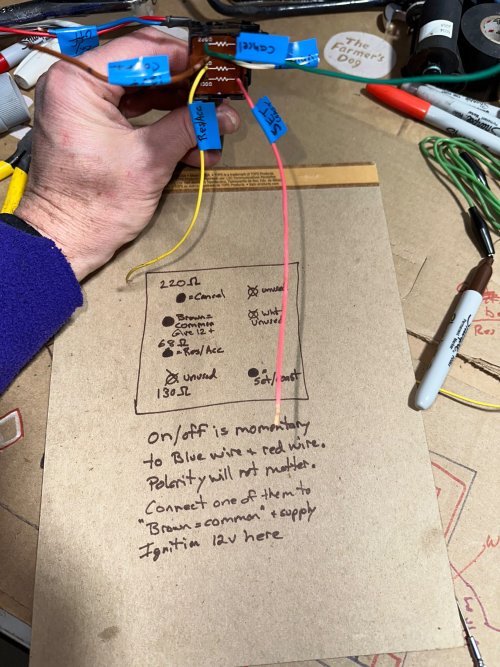 Cancel
The
Farmer's
Dog
SET
Res/Acc
220 Ω
= Cancel
unused
Brown=
Common
Give 12+
Wht
Unused
68 Ω
= Res/Acc
unused
130 Ω
=
Set/coast
On/off is momentary
to Blue wire + red wire.
Polarity will not matter.
Connect one of them to
"Brown = common" + supply
Ignition 12v here